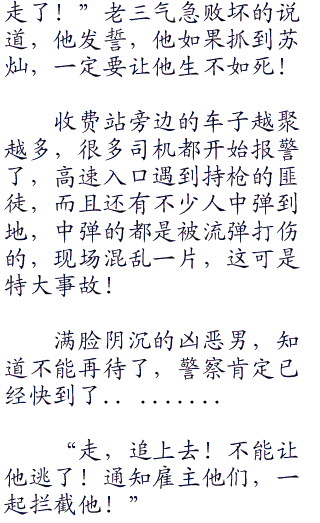 走了！”老三气急败坏的说
道，他发誓，他如果抓到苏
灿，一定要让他生不如死！
收费站旁边的车子越聚
越多，很多司机都开始报警
了，高速入口遇到持枪的匪
徒，而且还有不少人中弹到
地，中弹的都是被流弹打伤
的，现场混乱一片，这可是
特大事故！
满脸阴沉的凶恶男，知
道不能再待了，警察肯定已
经快到了.. .......
“走，追上去！不能让
他逃了！通知雇主他们，一
起拦截他！”